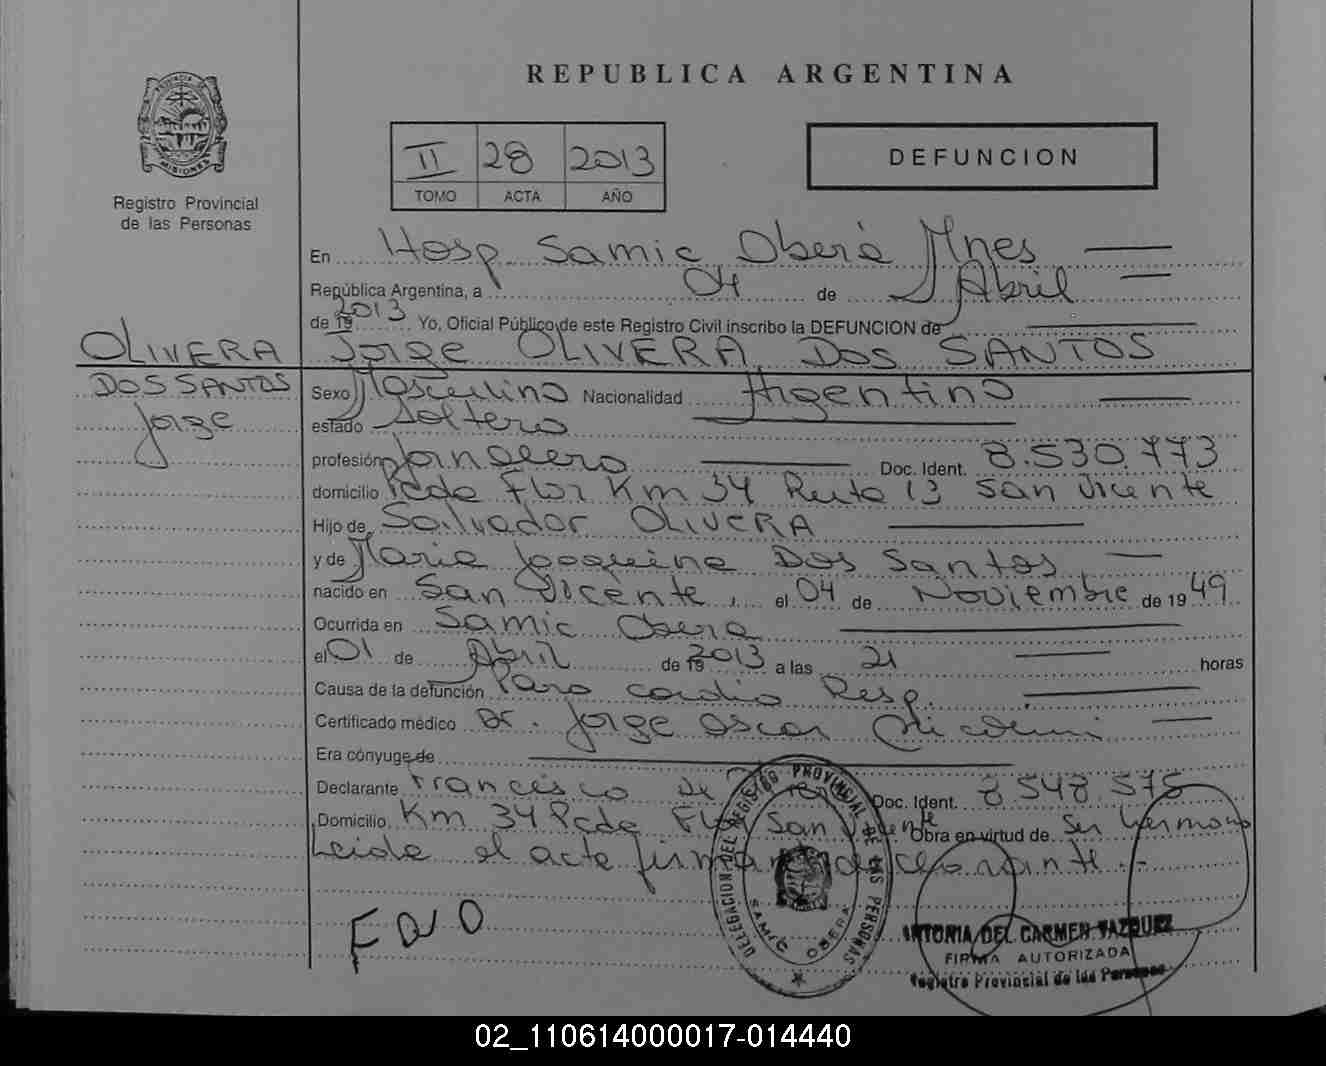 REPUBLICA ARGENTINA
PROVINCIA DE
MISIONES
Registro Provincial
de las Personas
II 28 2013
TOMO ACTA AÑO
DEFUNCION
En Hosp Samic Oberá Mnes
República Argentina, a 04 de Abril
de 19 2013 Yo, Oficial Público de este Registro Civil inscribo la DEFUNCION de
Jorge OLIVERA DOS SANTOS
OLIVERA
DOS SANTOS
Jorge
Sexo Masculino Nacionalidad Argentino
estado Soltero
profesión Jornalero Doc. Ident. 8.530.773
domicilio Pcda Flor Km 34 Ruta 13 San Vicente
Hijo de Salvador OLIVERA
y de Maria Joaquina Dos Santos
nacido en San Vicente, el 04 de Noviembre de 1949
Ocurrida en Samic Obera
el 01 de Abril de 19 2013 a las 21 horas
Causa de la defunción Paro cardio Resp.
Certificado médico Dr. Jorge Oscar
Era cónyuge de
Declarante Francisco Doc. Ident. 8 548 575
Domicilio Km 34 Pcda Flor San Vicente Obra en virtud de Ser hermano
Leida el acta firma declarante.-
DELEGACION DEL REGISTRO PROVINCIAL DE LAS PERSONAS
SAMIC OBERA
ANTONIA DEL CARMEN VAZQUEZ
FIRMA AUTORIZADA
Registro Provincial de las Personas
02_110614000017-014440